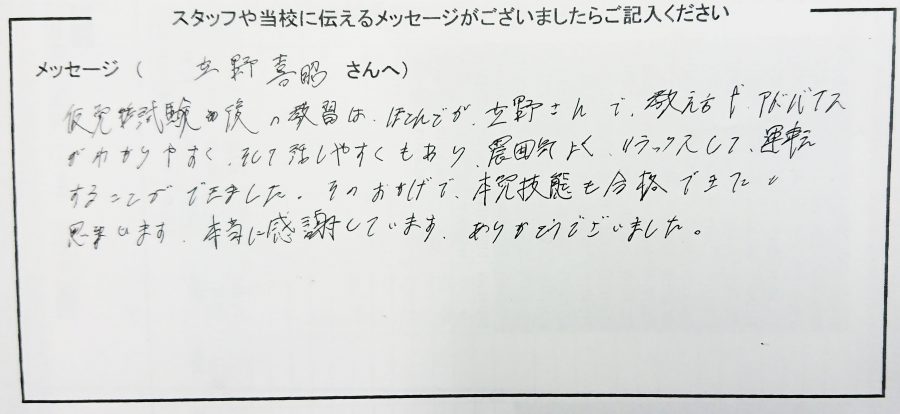 スタッフや当校に伝えるメッセージがございましたらご記入ください
メッセージ（ 立野喜昭 さんへ）
仮免許試験の後の教習は、ほとんどが、立野さんで、教え方や、アドバイス
がわかりやすく、そして話しやすくもあり、雰囲気よく、リラックスして、運転
することができました。そのおかげで、本免技能も合格できたと
思います。本当に感謝しています。ありがとうございました。